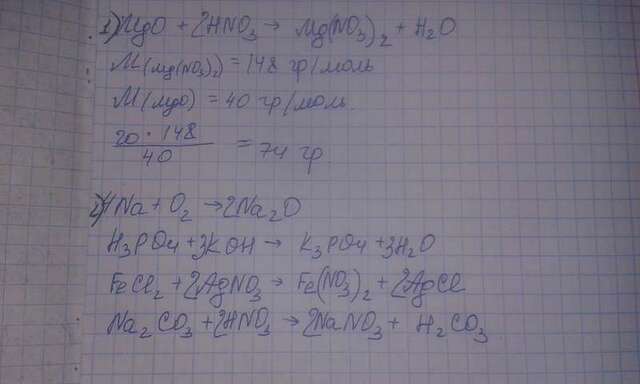 1) MgO + 2HNO₃ → Mg(NO₃)₂ + H₂O
M(Mg(NO₃)₂) = 148 гр/моль
M(MgO) = 40 гр/моль
20 · 148 / 40 = 74 гр
2) 4Na + O₂ → 2Na₂O
H₃PO₄ + 3KOH → K₃PO₄ + 3H₂O
FeCl₂ + 2AgNO₃ → Fe(NO₃)₂ + 2AgCl
Na₂CO₃ + 2HNO₃ → 2NaNO₃ + H₂CO₃